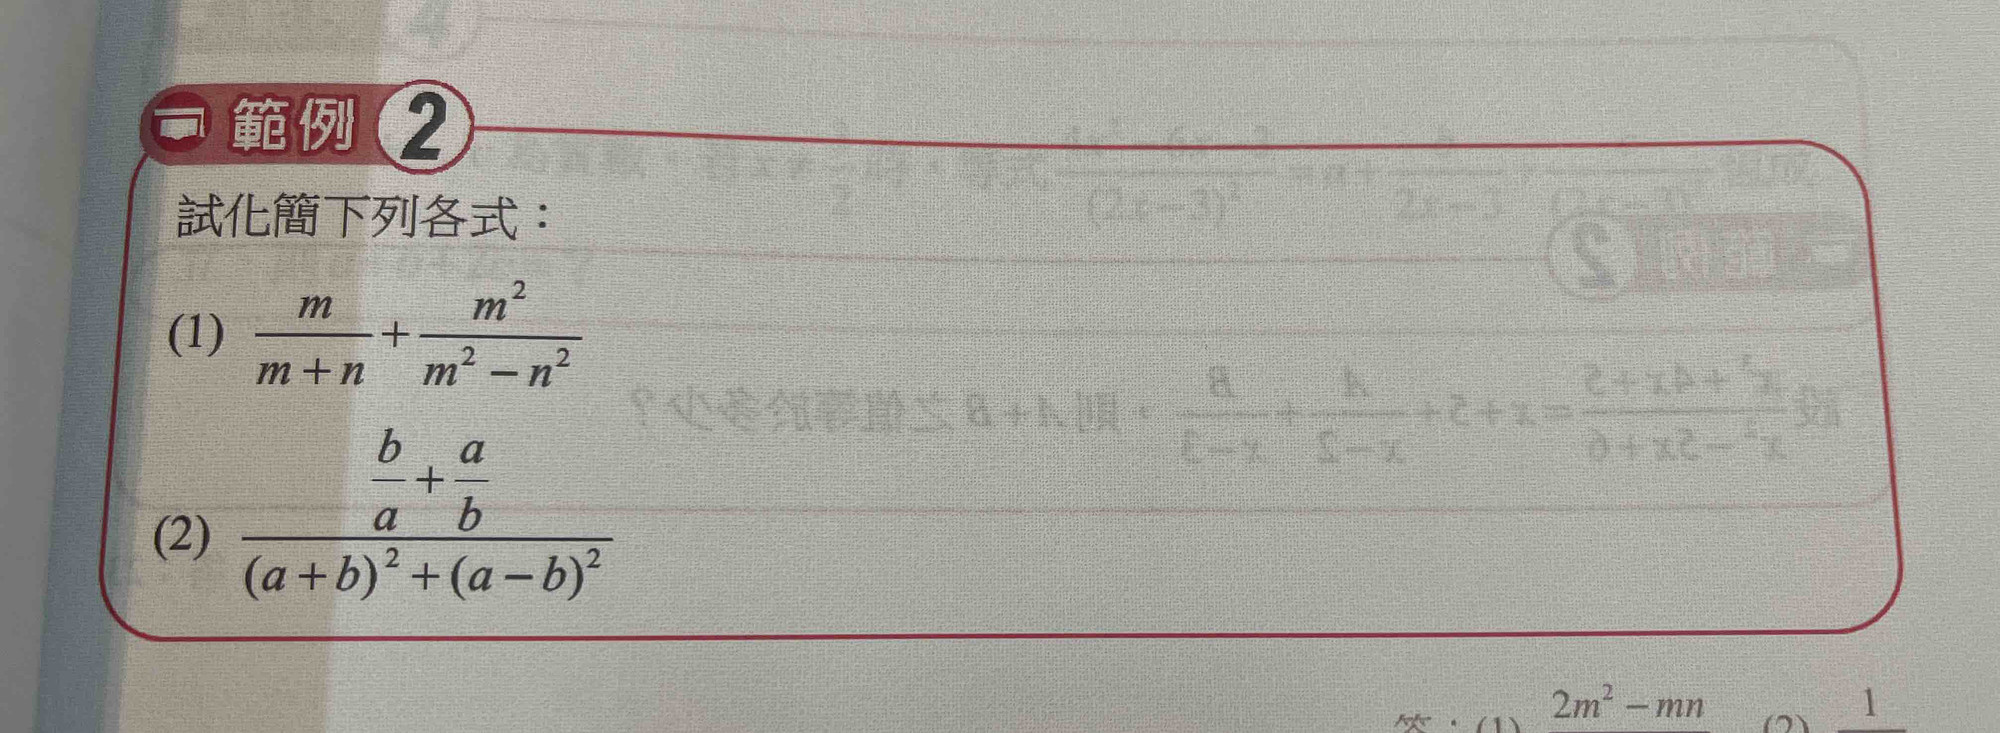 範例 2
試化簡下列各式：
(1) m/(m+n) + m²/(m²−n²)
(2) (b/a + a/b)/((a+b)²+(a−b)²)
答：(1) 2m²−mn (2) 1